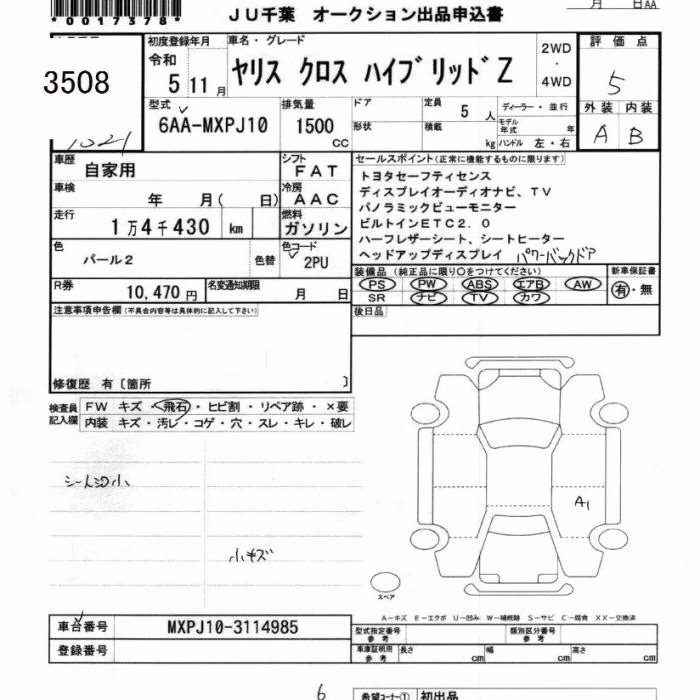 *0017378*
JU千葉 オークション出品申込書
月 日AA
3508
1021
初度登録年月
令和 5 11 月
車名・グレード
ヤリス クロス ハイブリッド Z
2WD
・
4WD
評価点
5
外装 内装
A B
型式
6AA-MXPJ10
排気量
1500 CC
ドア
形状
定員
5 人
積載
kg
ディーラー・並行
モデル年式 年
ハンドル 左・右
車歴
自家用
シフト
FAT
車検
年 月( 日)
冷房
AAC
走行
1万4千430 km
燃料
ガソリン
色
パール2
色替
色コード
2PU
R券
10,470 円
名変通知期限
月 日
セールスポイント(正常に機能するものに限ります)
トヨタセーフティセンス
ディスプレイオーディオナビ、TV
パノラミックビューモニター
ビルトインETC2.0
ハーフレザーシート、シートヒーター
ヘッドアップディスプレイ パワーバックドア
装備品 (純正品に限り○をつけてください)
PS PW ABS エアB AW
SR ナビ TV カワ
新車保証書
有・無
後日品
注意事項申告欄(不具合内容等は具体的に記入して下さい)
修復歴 有〔箇所 〕
検査員記入欄
FW キズ・飛石・ヒビ割・リペア跡・×要
内装 キズ・汚レ・コゲ・穴・スレ・キレ・破レ
シートシワ小
小キズ
A1
スペア
A-キズ E-エクボ U-凹み W-補修跡 S-サビ C-腐食 XX-交換済
車台番号
MXPJ10-3114985
登録番号
型式指定番号 参考
類別区分番号 参考
車庫証明用 参考
長さ cm
幅 cm
高さ cm
6
希望コーナー① 初出品